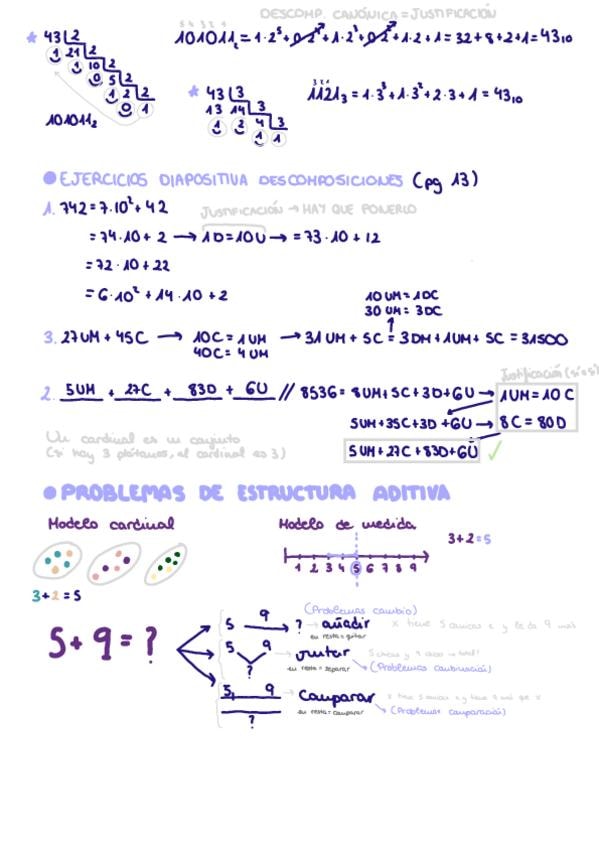 DESCOMP. CANÓNICA = JUSTIFICACIÓN
* 43 | 2
1 21 | 2
1 10 | 2
0 5 | 2
1 2 | 2
0 1
101011₂
5 4 3 2 1
101011₂ = 1·2⁵ + 0·2⁴ + 1·2³ + 0·2² + 1·2 + 1 = 32 + 8 + 2 + 1 = 43₁₀
* 43 | 3
13 14 | 3
1 2 4 | 3
1 1
3 2 1
1121₃ = 1·3³ + 1·3² + 2·3 + 1 = 43₁₀
● EJERCICIOS DIAPOSITIVA DESCOMPOSICIONES (pg 13)
1. 742 = 7·10² + 42
JUSTIFICACIÓN → HAY QUE PONERLO
= 74·10 + 2 → 1D = 10U → = 73·10 + 12
= 72·10 + 22
= 6·10² + 14·10 + 2
10 UM = 1DC
30 UM = 3DC
3. 27UM + 45C → 10C = 1UM → 31UM + 5C = 3DM + 1UM + 5C = 31500
40C = 4UM
Justificación (sí o sí)
2. 5UM + 27C + 83D + 6U // 8536 = 8UM + 5C + 3D + 6U → 1UM = 10C
5UM + 35C + 3D + 6U → 8C = 80D
5UM + 27C + 83D + 6U ✓
Un cardinal es un conjunto
(si hay 3 plátanos, el cardinal es 3)
● PROBLEMAS DE ESTRUCTURA ADITIVA
Modelo cardinal
Modelo de medida
3+2=5
1 2 3 4 5 6 7 8 9
3+2=5
5+9=?
5 9 ? → añadir
(Problemas cambio)
x tiene 5 amigos e y le da 9 más
su resta = quitar
5 9 ? → juntar
5 chicas y 9 chicos → total?
su resta = separar
(Problemas combinación)
5 9 ? → Comparar
x tiene 5 amigos e y tiene 9 más que x
su resta = comparar
(Problemas comparación)